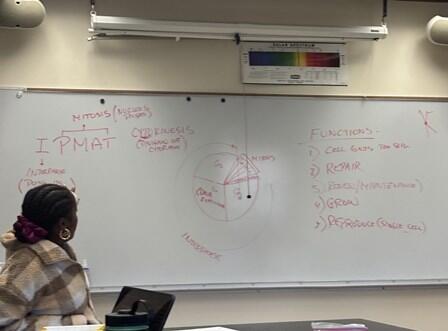 SOLAR SPECTRUM
MITOSIS (NUCLEUS DIVIDES)
I PMAT
CYTOKINESIS
(DIVISION OF
CYTOPLASM)
INTERPHASE
G₁
MITOSIS
G₂
INTERPHASE
FUNCTIONS -
1) CELL GETS TOO BIG
2) REPAIR
4) GROW
5) REPRODUCE (SINGLE CELL)